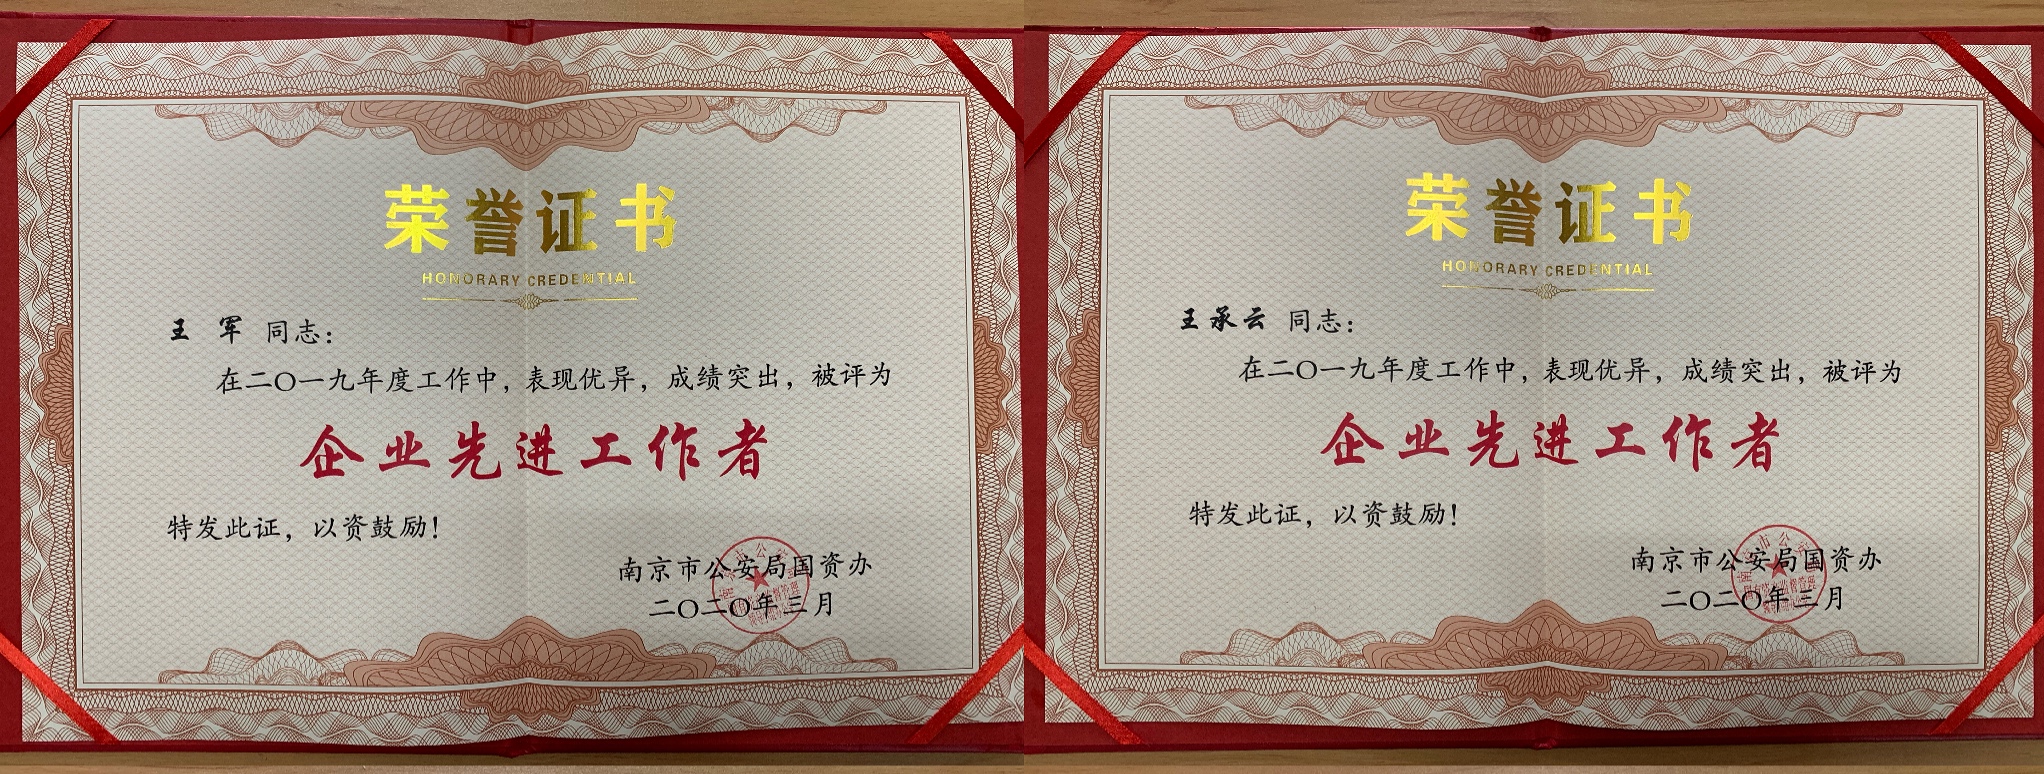 荣誉证书
HONORARY CREDENTIAL
王 军 同志：
在二〇一九年度工作中，表现优异，成绩突出，被评为
企业先进工作者
特发此证，以资鼓励！
南京市公安局国资办
二〇二〇年三月
荣誉证书
HONORARY CREDENTIAL
王承云 同志：
在二〇一九年度工作中，表现优异，成绩突出，被评为
企业先进工作者
特发此证，以资鼓励！
南京市公安局国资办
二〇二〇年三月